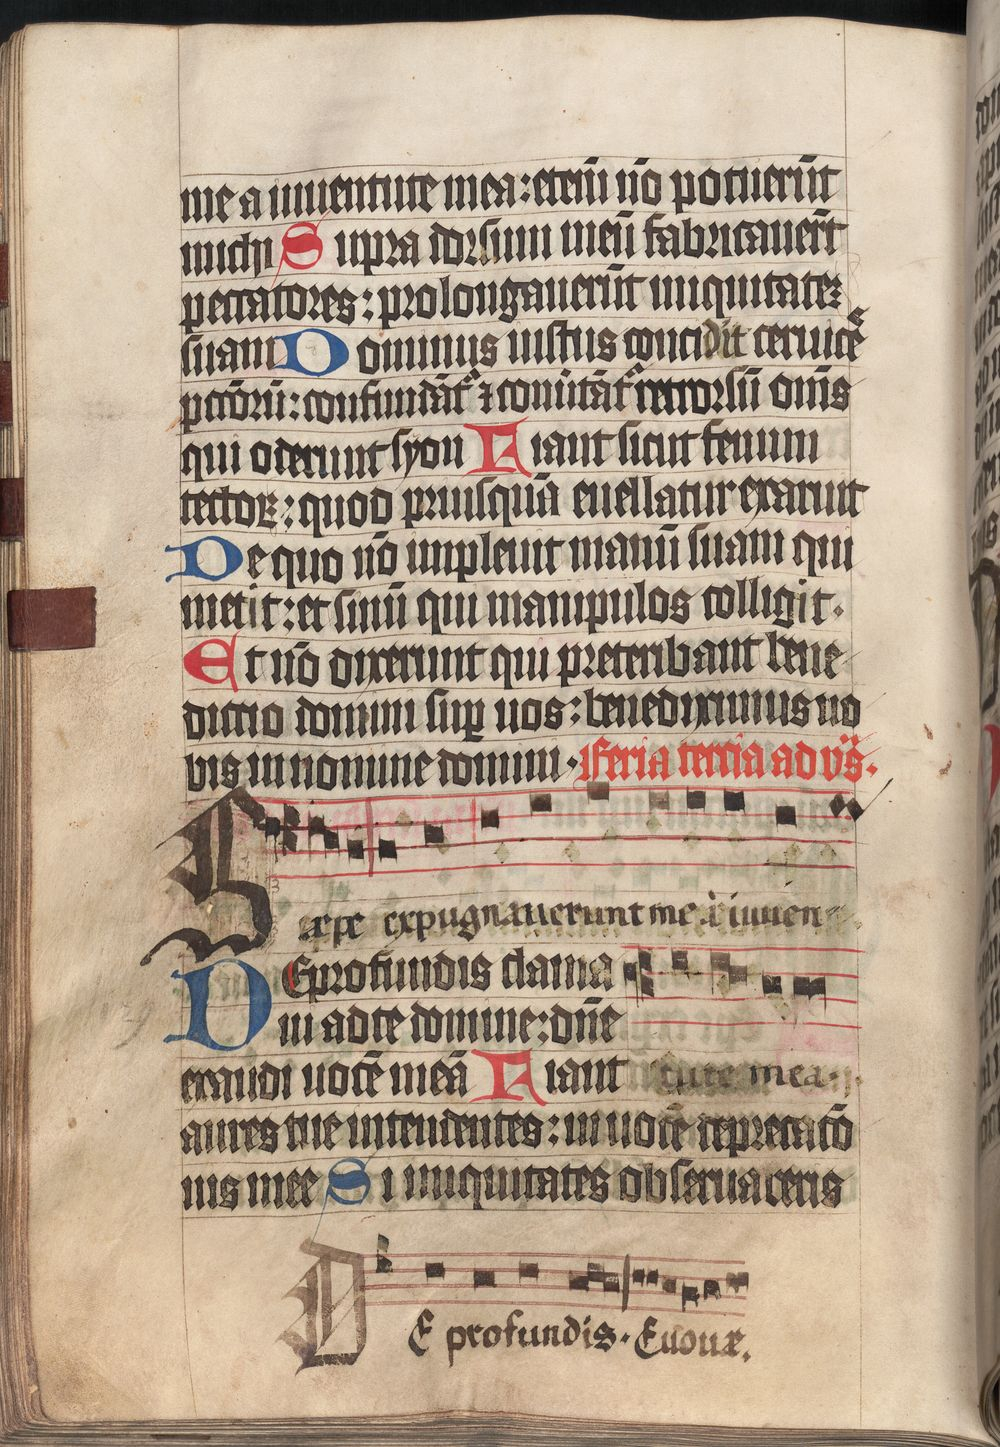 me a iuuentute mea: eteni nō potuerūt
michi Supra dorsum meū fabricauer̄t
peccatores: prolongauerūt iniquitatez
suam Dominus iustus concidit ceruicē
pctōrū: confundāt᷑ ⁊ conūtāt᷑ retrorsū om̄s
qui oderunt syon Fiant sicut fenum
tectoꝝ: quod priusquā euellatur exaruit
De quo nō impleuit manū suam qui
metit: et sinū qui manipulos colligit.
Et nō dixerunt qui preteribant bene
dictio domini suꝑ uos: benediximus uo
bis in nomine domini. Feria tertia ad vs̄.
Sæpe expugnauerunt me à iuuen
De profundis clama
ui ad te domine: dn̄e
exaudi uocē meā Fiant tute mea.
aures tue intendentes: in uocē deprecatō
nis mee Si iniquitates obseruaueris
DE profundis. Euouæ.